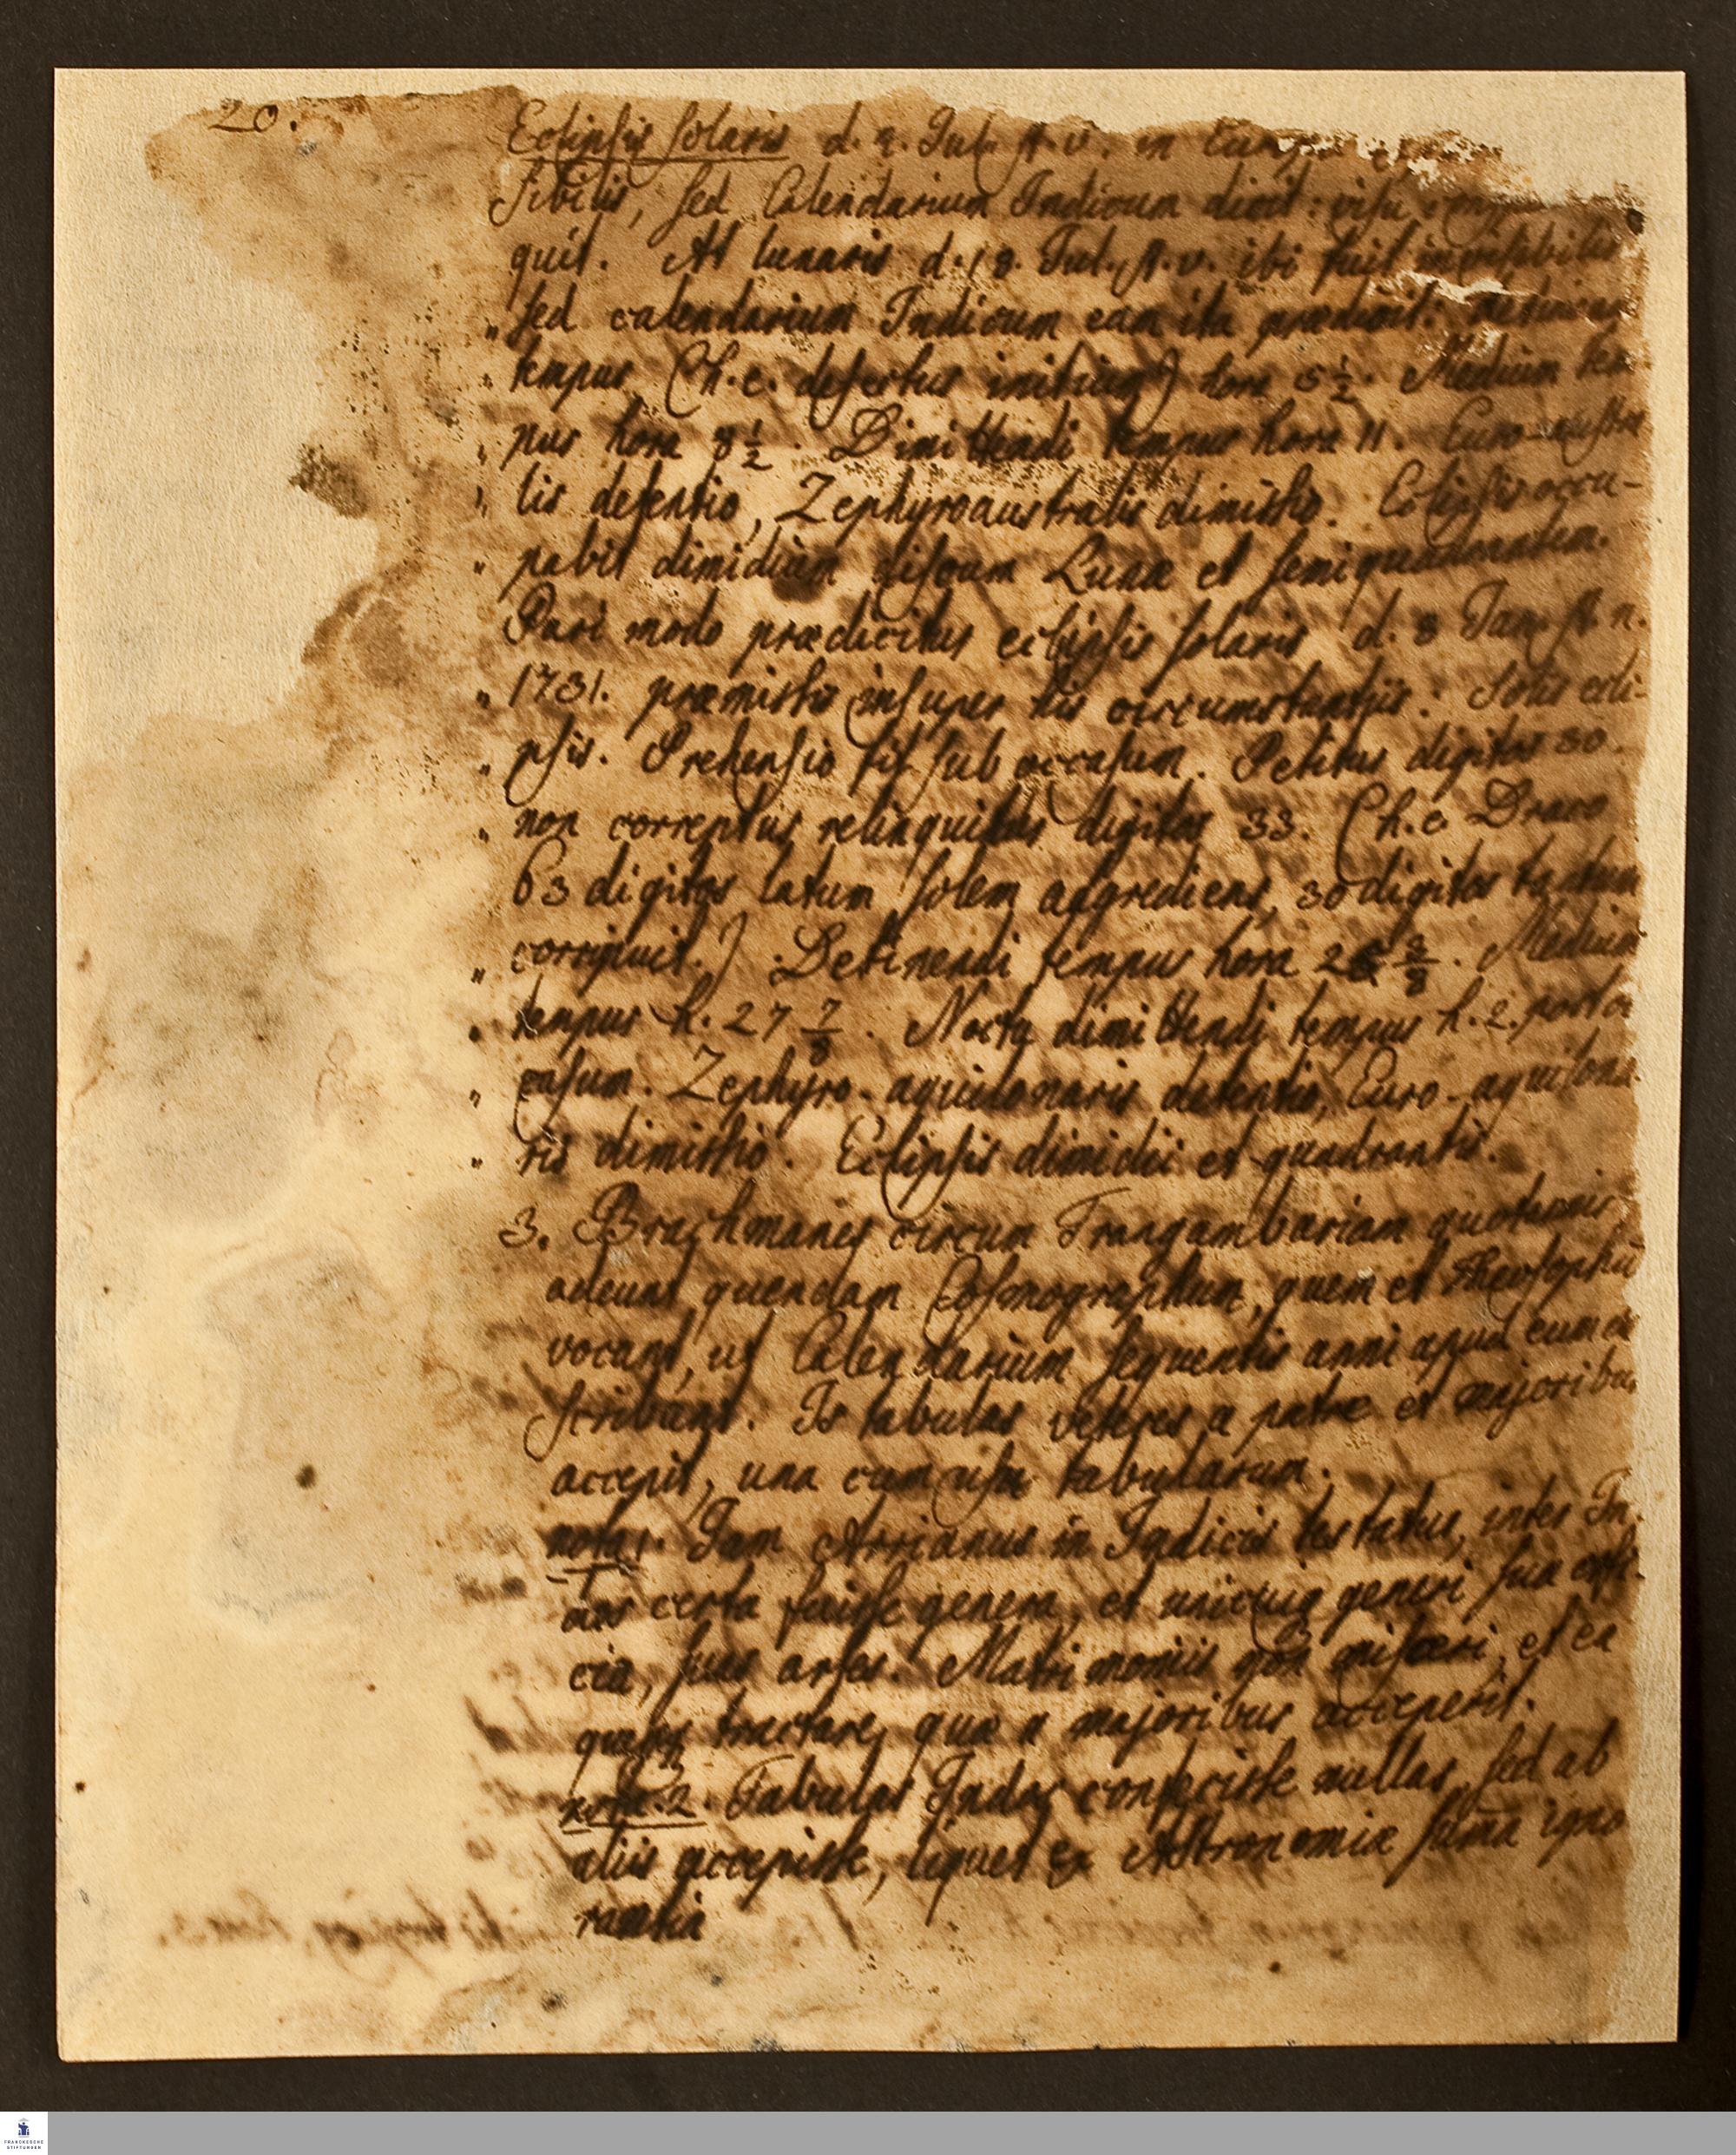 20.
Eclipsis solaris d. 2. Jul. st. v. in
sibilis, sed Calendarium Indicum dicit: visu
quit. At lunaris d. 18. Jul. st. v. ibi fuit invisibilis
„ sed calendarium Indicum eam ita praedixit:
„ tempus (h. e. defectus initium) hora 5½. Medium tem-
„ pus hora 8½. Dimittendi tempus hora 11. Euro-austra
„ lis detentio, Zephyroaustralis dimissio. Eclipsis occu-
„ pabit dimidium discum Lunae et semiquadrantem.
Pari modo praedicitur eclipsis solaris d. 8 Jan. st. n.
„ 1731. praemissis insuper his circumstantiis: Solis ecli-
„ psis. Prehensio fit sub occasum. Petitus digitos 30.
„ non correptus relinquitur digitos 33. (h. e. Draco
63 digitos latum solem adgrediens, 30 digitos tantum
„ corripuit.) Detinendi tempus hora Medium
„ tempus h. 27 7/8. Noctu dimittendi tempus h. 2. post oc
„ casum. Zephyro-aquilonaris detentio, Euro-aquilona
„ ris dimissio. Eclipsis dimidii et quadrantis.
3. Brachmanes circum Trangambariam quotannis
adeunt quendam Cosmographum, quem et Theosophū
vocant, ut Calendarium sequentis anni apud eum ex
scribant. Is tabulas veteres a patre et majoribus
accepit, una cum usu tabularum.
nota 1. Jam Arrianus in Indicis testatur, inter In
dos certa fuisse genera, et unicuiq generi sua offi-
cia, suas artes. Matrimoniis non misceri, et ea
quemq tractare, quae a majoribus acceperit.
nota. 2. Tabulas Indos confecisse nullas, sed ab
aliis accepisse, liquet ex Astronomiae sum̄a igno
rantia
FRANCKESCHE
STIFTUNGEN